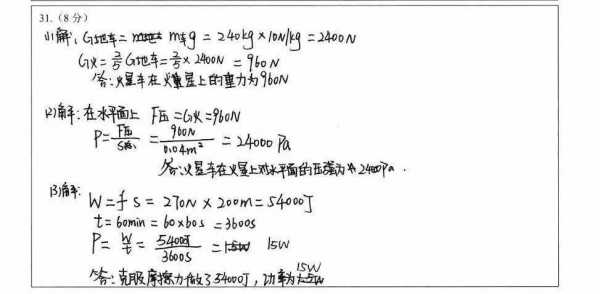 31.(8分)
(1)解:G地车 = m车g = 240kg × 10N/kg = 2400N
G火 = 2/5 G地车 = 2/5 × 2400N = 960N
答:火星车在火星上的重力为960N
(2)解:在水平面上 F压=G火=960N
P = F压/S = 960N/0.04m² = 24000Pa
答:火星车在火星上对水平面的压强为24000Pa.
(3)解:
W = fs = 270N × 200m = 54000J
t = 60min = 60×60s = 3600s
P = W/t = 54000J/3600s = 15W
答:克服摩擦力做了54000J,功率为15W